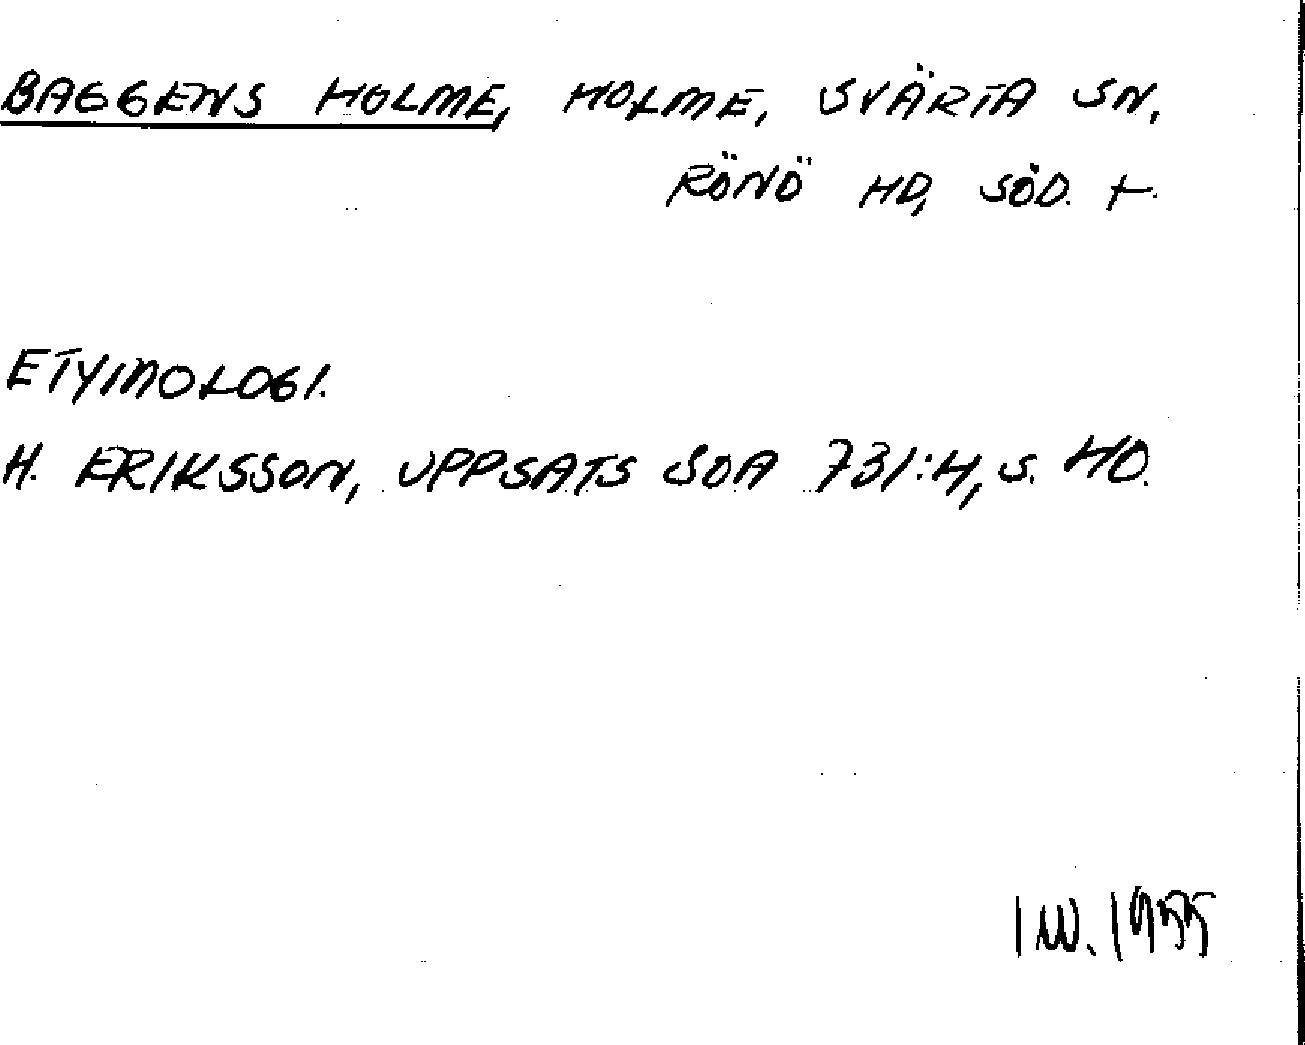 BAGGENS HOLME, HOLME, SVÄRTA SN,
RÖNÖ HD, SÖD. +.
ETYMOLOGI.
H. ERIKSSON, UPPSATS SOA 731:4, S. 40.
I W. 1955